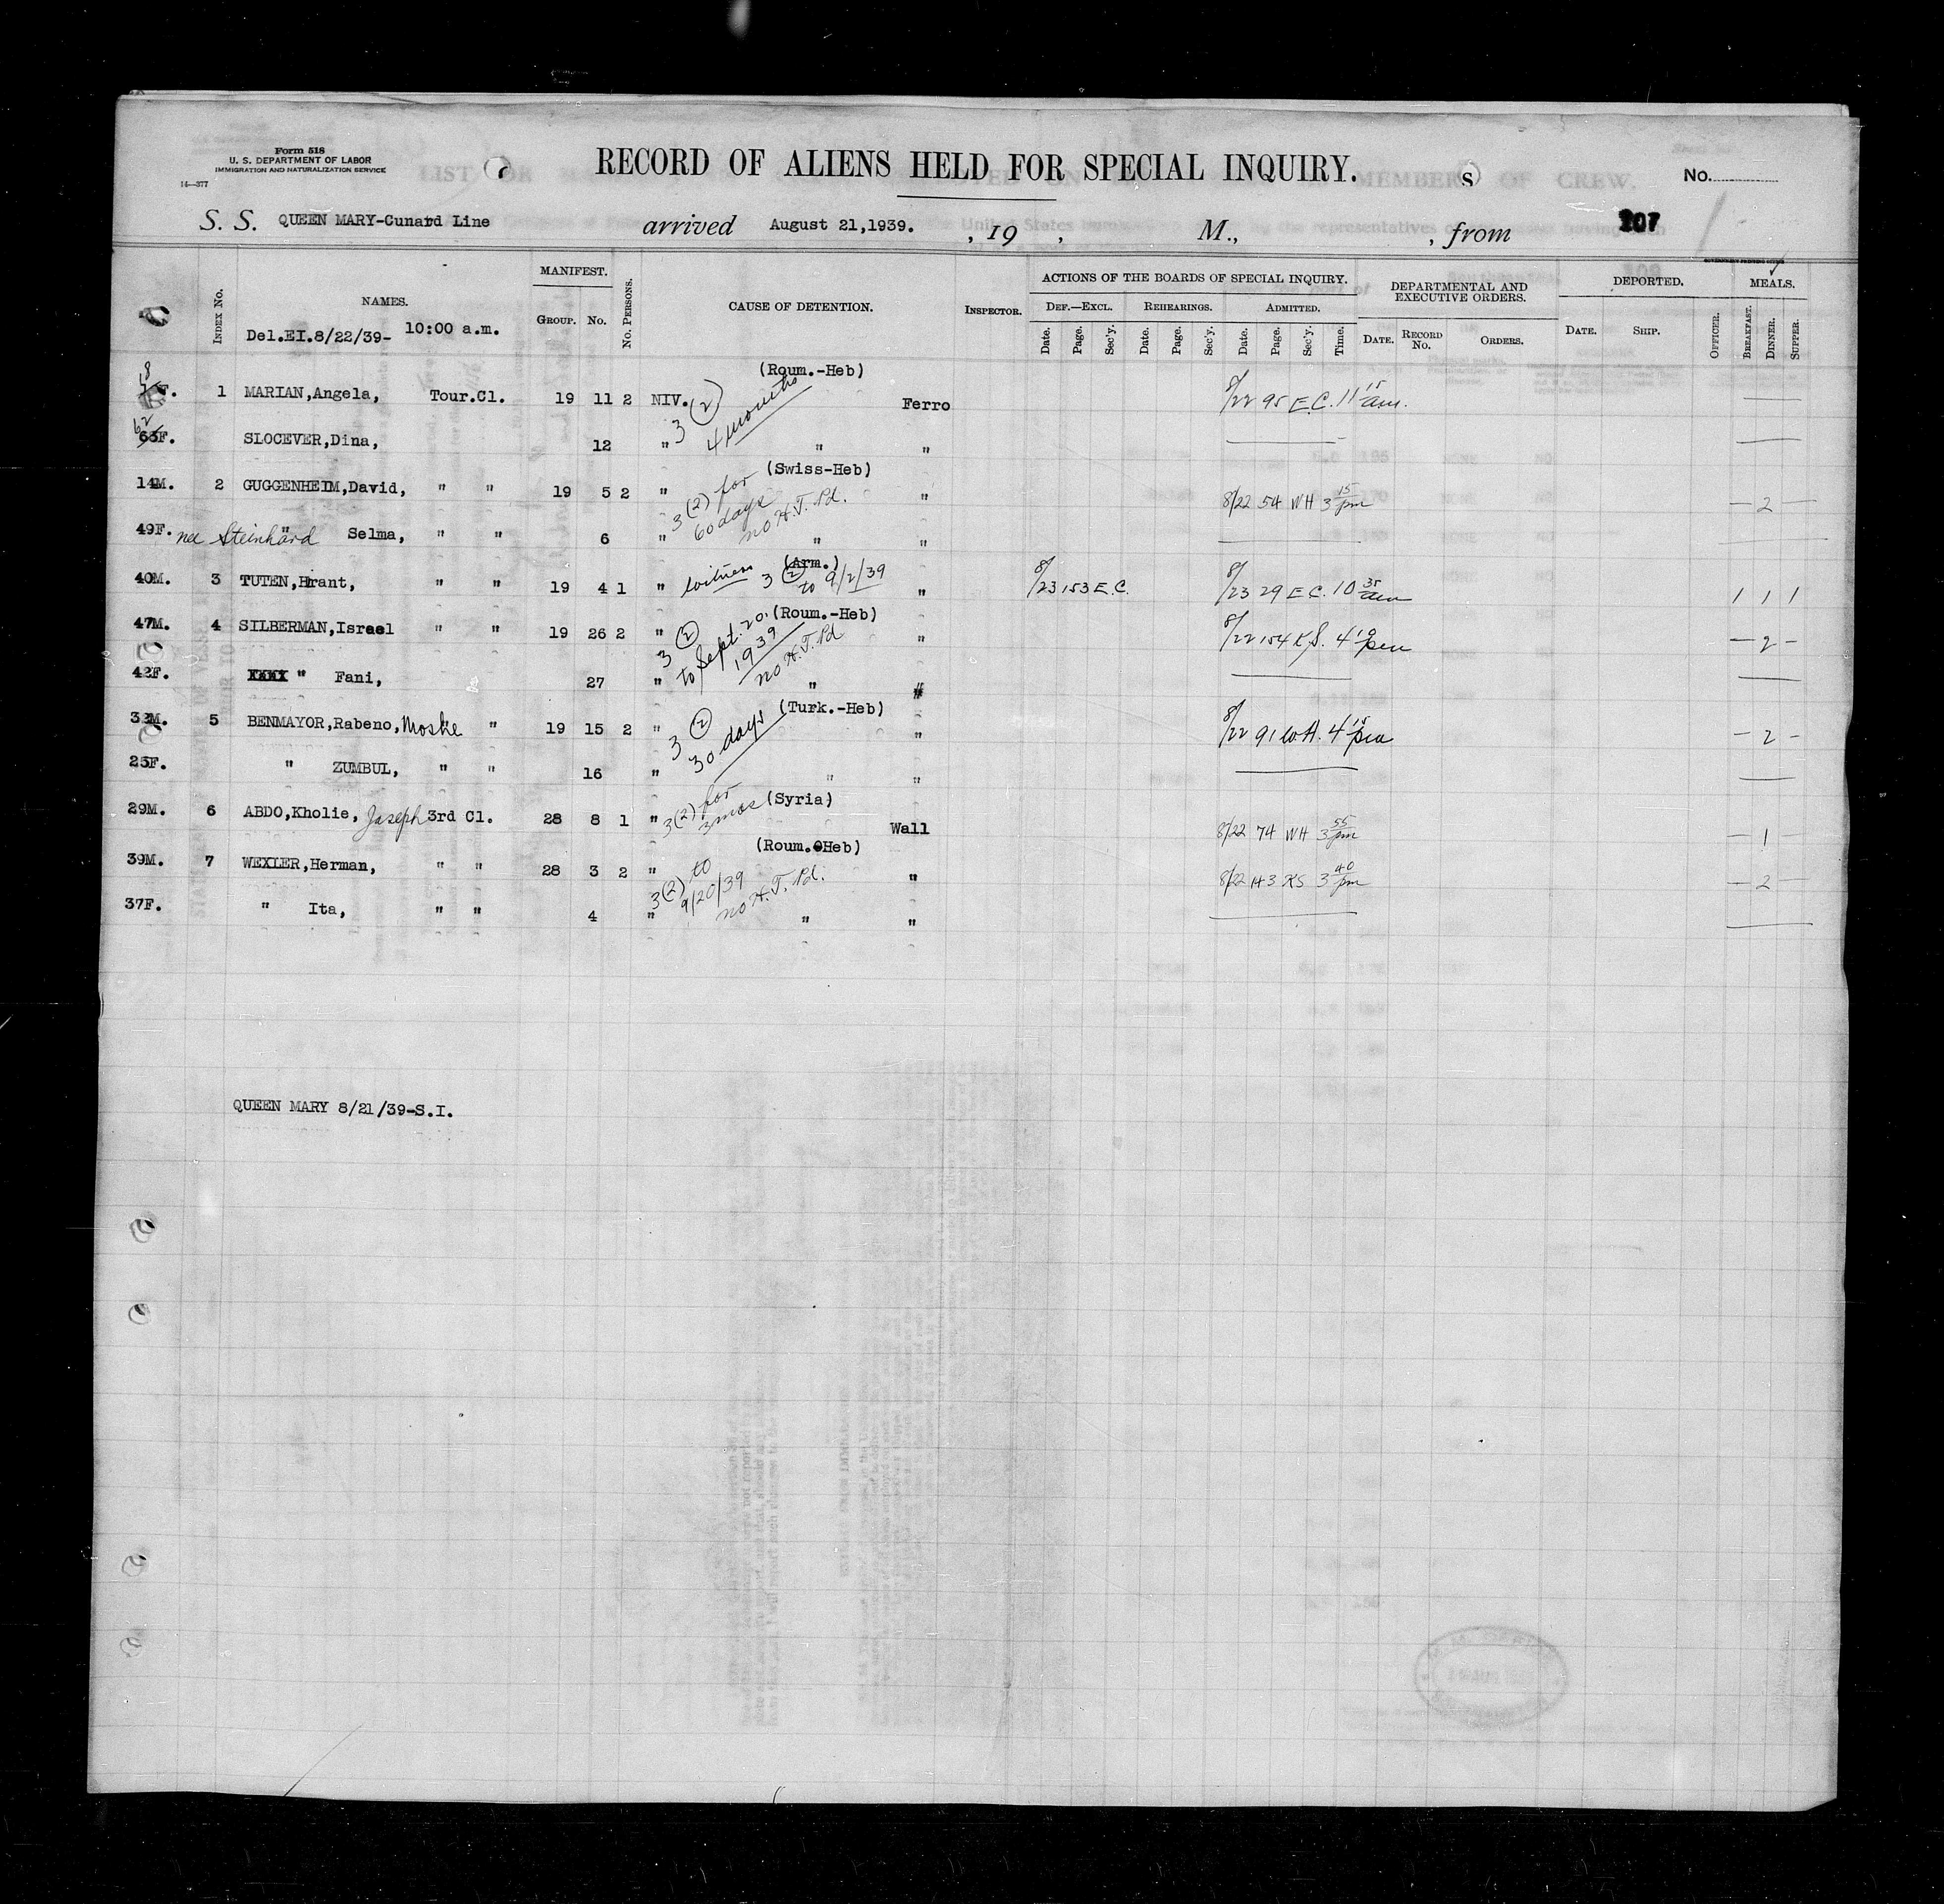 Form 518
U. S. DEPARTMENT OF LABOR
IMMIGRATION AND NATURALIZATION SERVICE
14—377
RECORD OF ALIENS HELD FOR SPECIAL INQUIRY.
s
No.
S. S. QUEEN MARY-Cunard Line arrived August 21,1939. , 19 , M., , from 207
INDEX No. NAMES. MANIFEST. GROUP. No. No. PERSONS. CAUSE OF DETENTION. INSPECTOR. ACTIONS OF THE BOARDS OF SPECIAL INQUIRY. DEPARTMENTAL AND EXECUTIVE ORDERS. DEPORTED. MEALS.
DEF.—EXCL. REHEARINGS. ADMITTED.
Date. Page. Sec'y. Date. Page. Sec'y. Date. Page. Sec'y. Time. DATE. RECORD No. ORDERS. DATE. SHIP. OFFICER. BREAKFAST. DINNER. SUPPER.
Del.EI.8/22/39- 10:00 a.m.
(Roum.-Heb)
F. 1 MARIAN,Angela, Tour.Cl. 19 11 2 NIV. 3 (2) 4 months Ferro 8/22 95 E.C. 11 15 am.
62 F. SLOCEVER,Dina, 12 " " "
(Swiss-Heb)
14M. 2 GUGGENHEIM,David, " " 19 5 2 " 3 (2) for 60 days no H.T. Pd. " 8/22 54 WH 3 15 pm — 2 —
49F. nee Steinhard " Selma, " " 6 " " "
(Arm.)
40M. 3 TUTEN,Hrant, " " 19 4 1 " witness 3 (2) to 9/2/39 " 8/23 153 E.C. 8/23 29 E.C. 10 35 am 1 1 1
(Roum.-Heb)
47M. 4 SILBERMAN,Israel " " 19 26 2 " 3 (2) to Sept. 20, 1939 no H.T. Pd " 8/22 154 K.S. 4 10 pm — 2 —
42F. " Fani, 27 " " "
(Turk.-Heb)
32M. 5 BENMAYOR,Rabeno, Moshe " 19 15 2 " 3 (2) 30 days " 8/22 91 W.H. 4 15 pm — 2 —
25F. " ZUMBUL, " " 16 " " "
(Syria)
29M. 6 ABDO,Kholie, Joseph 3rd Cl. 28 8 1 " 3 (2) for 3 mos Wall 8/22 74 WH 3 55 pm — 1 —
(Roum.-Heb)
39M. 7 WEXLER,Herman, " " 28 3 2 " 3 (2) to 9/20/39 no H.T. Pd. " 8/22 143 KS 3 40 pm — 2 —
37F. " Ita, " " 4 " " "
QUEEN MARY 8/21/39-S.I.